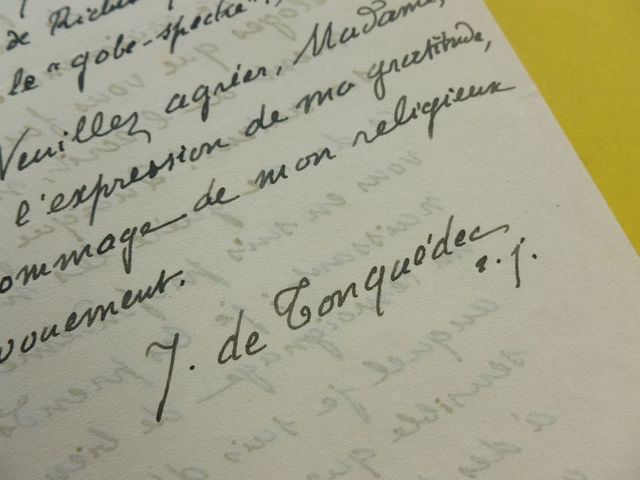 de Riche
le "gobe-spectre",
Veuillez agréer, Madame,
l'expression de ma gratitude,
ommage de mon religieux
vouement.
J. de Tonquédec
s. j.